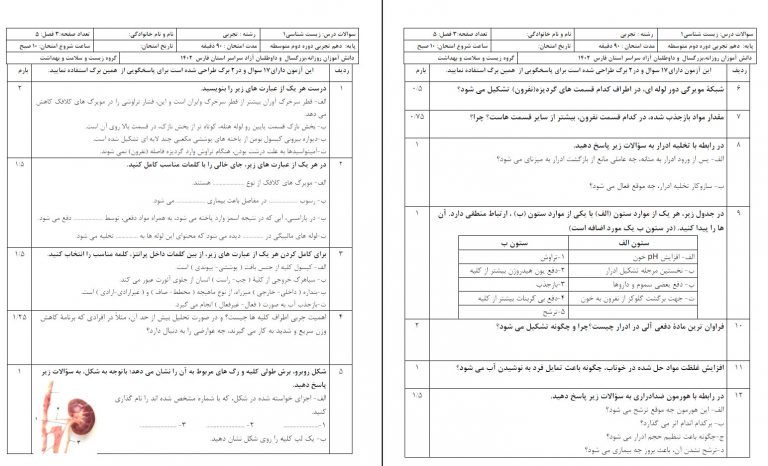 سوالات درس: زیست شناسی۱ رشته : تجربی نام و نام خانوادگی: تعداد صفحه:۳ فصل: ۵
پایه: دهم تجربی دوره دوم متوسطه مدت امتحان : ۹۰ دقیقه تاریخ امتحان: ساعت شروع امتحان: ۱۰ صبح
دانش آموزان روزانه،بزرگسال و داوطلبان آزاد سراسر استان فارس ۱۴۰۲ گروه زیست و سلامت و بهداشت
ردیف این آزمون دارای۱۷ سوال و در۲ برگ طراحی شده است برای پاسخگویی از همین برگ استفاده نمایید. بارم
۱ درست هر یک از عبارت های زیر را بنویسید. ۲
الف- قطر سرخرگ آوران بیشتر از قطر سرخرگ وابران است و این، فشار تراوشی را در مویرگ های کلافک کاهش
می دهد.
ب- بخش نازک قسمت پایین رو لوله هنله، کوتاه تر از بخش نازک، در قسمت بالا روی آن است.
پ-دیواره بیرونی کپسول بومن از یاخته های پوششی مکعبی چند لایه ای تشکیل شده است.
ت-آمینواسیدها به علت درشت بودن، هنگام تراوش وارد گردیزه (نفرون) نمی شوند.
۲ در هر یک از عبارت های زیر، جای خالی را با کلمات مناسب کامل کنید. ۱/۵
الف- مویرگ های کلافک از نوع ................ هستند.
ب- رسوب ................ در مفاصل باعث بیماری ................ می شود.
پ- در پارامسی، آبی که در نتیجه اسمز وارد یاخته می شود، به همراه مواد دفعی، توسط ................ دفع می شود.
ت-لوله های مالپیگی در ................ دیده می شود که محتوای این لوله ها به ................ تخلیه می شود.
۳ برای کامل کردن هر یک از عبارت های زیر، از بین کلمات داخل پرانتز، کلمه مناسب را انتخاب کنید. ۱/۵
الف- کپسول کلیه از جنس بافت ( پوششی- پیوندی ) است.
ب- سیاهرگ خروجی از کلیه ( چپ- راست ) انسان از جلوی آئورت عبور می کند.
پ-بنداره ( داخلی- خارجی ) میزراه، از نوع ماهیچه ( مخطط- صاف ) و (غیرارادی-ارادی ) است.
ت-بازجذب آب به صورت ( فعال- غیرفعال) انجام می گیرد.
۴ اهمیت چربی اطراف کلیه ها چیست؟ و در صورت تحلیل بیش از حد آن، مثلاً در افرادی که برنامهٔ کاهش ۱/۲۵
وزن سریع و شدید به کار می گیرند، چه عوارضی را به دنبال دارد؟
۵ شکل روبرو، برش طولی کلیه و رگ های مربوط به آن را نشان می دهد؛ باتوجه به شکل، به سؤالات زیر ۱
پاسخ دهید.
الف- اجزای خواسته شده در شکل، که با شماره مشخص شده اند را نام گذاری
کنید.
۱-................ ۲-................ ۳-................
ب- یک لپ کلیه را روی شکل نشان دهید.
سوالات درس: زیست شناسی۱ رشته : تجربی نام و نام خانوادگی: تعداد صفحه:۳ فصل: ۵
پایه: دهم تجربی دوره دوم متوسطه مدت امتحان : ۹۰ دقیقه تاریخ امتحان: ساعت شروع امتحان: ۱۰ صبح
دانش آموزان روزانه،بزرگسال و داوطلبان آزاد سراسر استان فارس ۱۴۰۲ گروه زیست و سلامت و بهداشت
ردیف این آزمون دارای۱۷ سوال و در۲ برگ طراحی شده است برای پاسخگویی از همین برگ استفاده نمایید. بارم
۶ شبکهٔ مویرگی دور لوله ای، در اطراف کدام قسمت های گردیزه(نفرون) تشکیل می شود؟ ۰/۵
۷ مقدار مواد بازجذب شده، در کدام قسمت نفرون، بیشتر از سایر قسمت هاست؟ چرا؟ ۰/۷۵
۸ در رابطه با تخلیه ادرار به سؤالات زیر پاسخ دهید. ۱
الف- پس از ورود ادرار به مثانه، چه عاملی مانع از بازگشت ادرار به میزنای می شود؟
ب- سازوکار تخلیه ادرار، چه موقع فعال می شود؟
۹ در جدول زیر، هر یک از موارد ستون (الف) با یکی از موارد ستون (ب) ، ارتباط منطقی دارد. آن ۱
ها را پیدا کنید. (در ستون ب یک مورد اضافه است)
ستون الف ستون ب
الف- افزایش pH خون ۱-تراوش
ب- نخستین مرحله تشکیل ادرار ۲-دفع یون هیدروژن بیشتر از کلیه
پ- دفع بعضی سموم و داروها ۳-بازجذب
ت- جهت برگشت گلوکز از نفرون به خون ۴-دفع بی کربنات بیشتر از کلیه
۵-ترشح
۱۰ فراوان ترین مادهٔ دفعی آلی در ادرار چیست؟چرا و چگونه تشکیل می شود؟ ۲
۱۱ افزایش غلظت مواد حل شده در خوناب، چگونه باعث تمایل فرد به نوشیدن آب می شود؟ ۱
۱۲ در رابطه با هورمون ضدادراری به سؤالات زیر پاسخ دهید. ۱/۵
الف-این هورمون چه موقع ترشح می شود؟
ب- برکدام اندام اثر می گذارد؟
ج-چگونه باعث تنظیم حجم ادرار می شود؟
د-ترشح نشدن آن، باعث بروز چه بیماری می شود؟